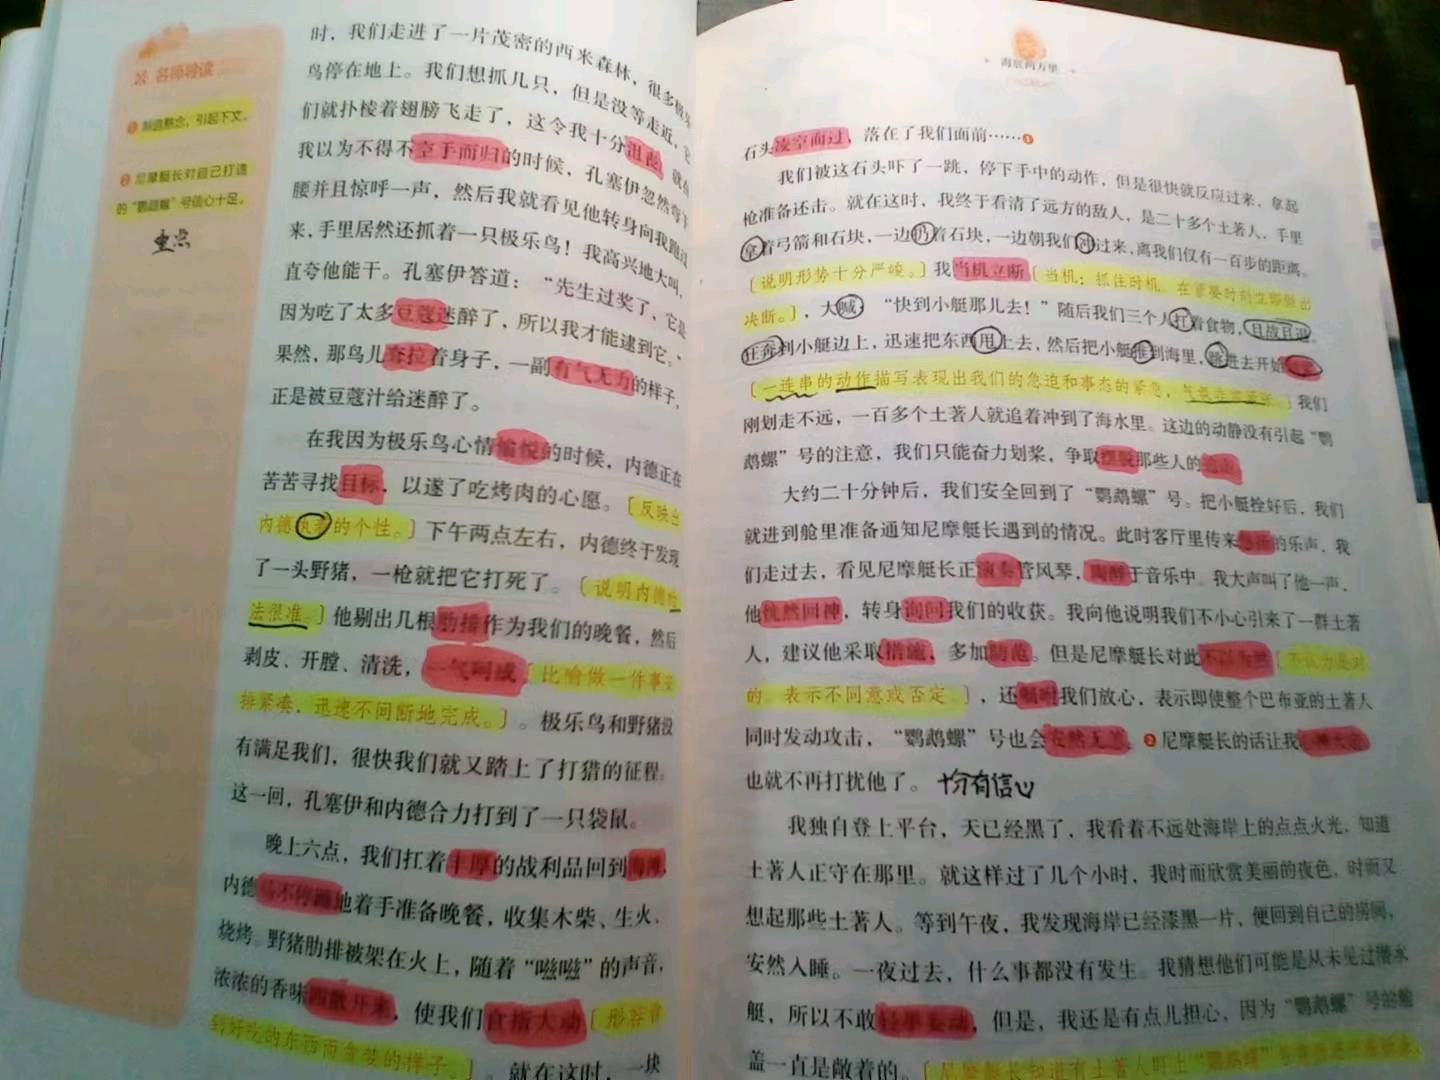 名师导读
❶ 制造悬念，引起下文。
❷ 尼摩艇长对自己打造
的“鹦鹉螺”号信心十足。
重点
时，我们走进了一片茂密的西米森林，很多极乐
鸟停在地上。我们想抓几只，但是没等走近，它
们就扑棱着翅膀飞走了，这令我十分沮丧。就在
我以为不得不空手而归的时候，孔塞伊忽然弯下
腰并且惊呼一声，然后我就看见他转身向我跑过
来，手里居然还抓着一只极乐鸟！我高兴地大叫，
直夸他能干。孔塞伊答道：“先生过奖了，它是
因为吃了太多豆蔻迷醉了，所以我才能逮到它。”
果然，那鸟儿耷拉着身子，一副有气无力的样子，
正是被豆蔻汁给迷醉了。
在我因为极乐鸟心情愉悦的时候，内德正在
苦苦寻找目标，以遂了吃烤肉的心愿。〔反映出
内德执着的个性。〕下午两点左右，内德终于发现
了一头野猪，一枪就把它打死了。〔说明内德枪
法很准。〕他剔出几根肋排作为我们的晚餐，然后
剥皮、开膛、清洗，一气呵成〔比喻做一件事安
排紧凑，迅速不间断地完成。〕。极乐鸟和野猪没
有满足我们，很快我们就又踏上了打猎的征程。
这一回，孔塞伊和内德合力打到了一只袋鼠。
晚上六点，我们扛着丰厚的战利品回到海滩，
内德马不停蹄地着手准备晚餐，收集木柴、生火、
烧烤。野猪肋排被架在火上，随着“嗞嗞”的声音，
浓浓的香味四散开来，使我们食指大动〔形容看
到好吃的东西而贪婪的样子。〕。就在这时，一块
海底两万里
石头凌空而过，落在了我们面前……❶
我们被这石头吓了一跳，停下手中的动作，但是很快就反应过来，拿起
枪准备还击。就在这时，我终于看清了远方的敌人，是二十多个土著人，手里
拿着弓箭和石块，一边扔着石块，一边朝我们冲过来，离我们仅有一百步的距离。
〔说明形势十分严峻。〕我当机立断〔当机：抓住时机。在紧要时刻立即做出
决断。〕，大喊：“快到小艇那儿去！”随后我们三个人扛着食物，且战且退。
狂奔到小艇边上，迅速把东西甩上去，然后把小艇推到海里，跳进去开始
〔一连串的动作描写表现出我们的急迫和事态的紧急，气氛非常紧张。〕我们
刚划走不远，一百多个土著人就追着冲到了海水里。这边的动静没有引起“鹦
鹉螺”号的注意，我们只能奋力划桨，争取摆脱那些人的追击。
大约二十分钟后，我们安全回到了“鹦鹉螺”号。把小艇拴好后，我们
就进到舱里准备通知尼摩艇长遇到的情况。此时客厅里传来悠扬的乐声，我
们走过去，看见尼摩艇长正演奏管风琴，陶醉于音乐中。我大声叫了他一声，
他恍然回神，转身询问我们的收获。我向他说明我们不小心引来了一群土著
人，建议他采取措施，多加防范。但是尼摩艇长对此不以为然〔不认为是对
的。表示不同意或否定。〕，还嘱咐我们放心，表示即使整个巴布亚的土著人
同时发动攻击，“鹦鹉螺”号也会安然无恙。❷尼摩艇长的话让我心神大定，
也就不再打扰他了。 十分有信心
我独自登上平台，天已经黑了，我看着不远处海岸上的点点火光，知道
土著人正守在那里。就这样过了几个小时，我时而欣赏美丽的夜色，时而又
想起那些土著人。等到午夜，我发现海岸已经漆黑一片，便回到自己的房间，
安然入睡。一夜过去，什么事都没有发生。我猜想他们可能是从未见过潜水
艇，所以不敢轻举妄动，但是，我还是有点儿担心，因为“鹦鹉螺”号的舱
盖一直是敞着的。〔尼摩艇长知道有土著人盯上“鹦鹉螺”号